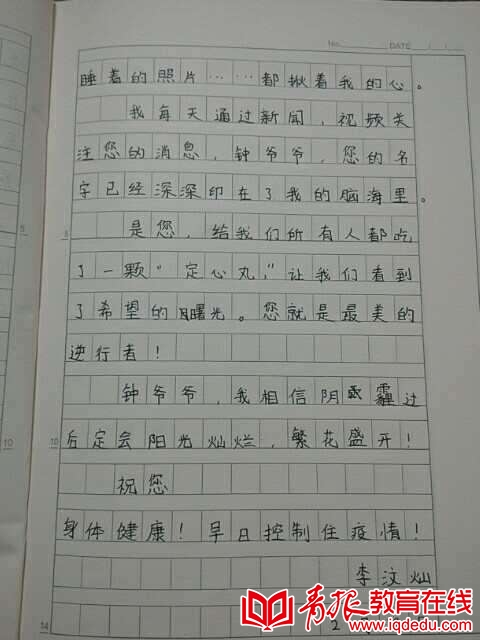 No. DATE / /
睡着的照片……都揪着我的心。
我每天通过新闻，视频关
注您的消息，钟爷爷，您的名
字已经深深印在了我的脑海里。
是您，给我们所有人都吃
了一颗“定心丸，”让我们看到
了希望的曙光。您就是最美的
逆行者！
钟爷爷，我相信阴霾过
后定会阳光灿烂，繁花盛开！
祝您
身体健康！早日控制住疫情！
李汶灿
2
5
5
10
10
14
青报教育在线
www.iqdedu.com